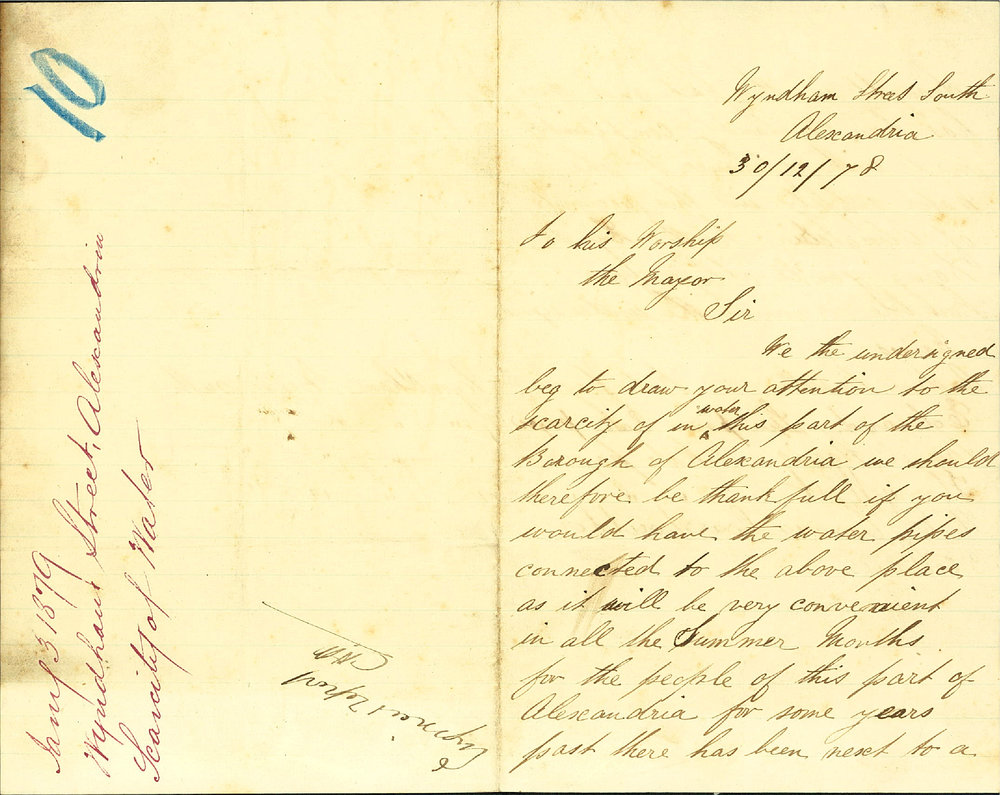 10
Jany 3 1879
Wyndham Street, Alexandria
Scarcity of Water
Wyndham Street South
Alexandria
30/12/78
To his Worship
the Mayor
Sir
We the undersigned
beg to draw your attention to the
scarcity of in water this part of the
Borough of Alexandria we should
therefore be thankfull if you
would have the water pipes
connected to the above place
as it will be very convenient
in all the Summer Months
for the people of this part of
Alexandria for some years
past there has been next to a